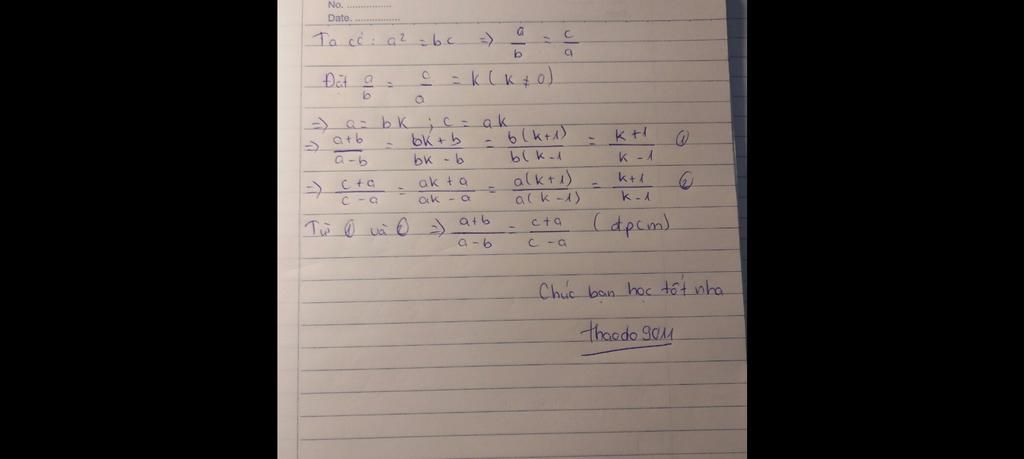 No. ..............
Date. ..............
Ta có : a² = bc => a/b = c/a
Đặt a/b = c/a = k ( k ≠ 0 )
=> a = bk ; c = ak
=> a+b/a-b = bk+b/bk-b = b(k+1)/b(k-1 = k+1/k-1 ①
=> c+a/c-a = ak+a/ak-a = a(k+1)/a(k-1) = k+1/k-1 ②
Từ ① và ② => a+b/a-b = c+a/c-a (đpcm)
Chúc bạn học tốt nha
thaodo9011